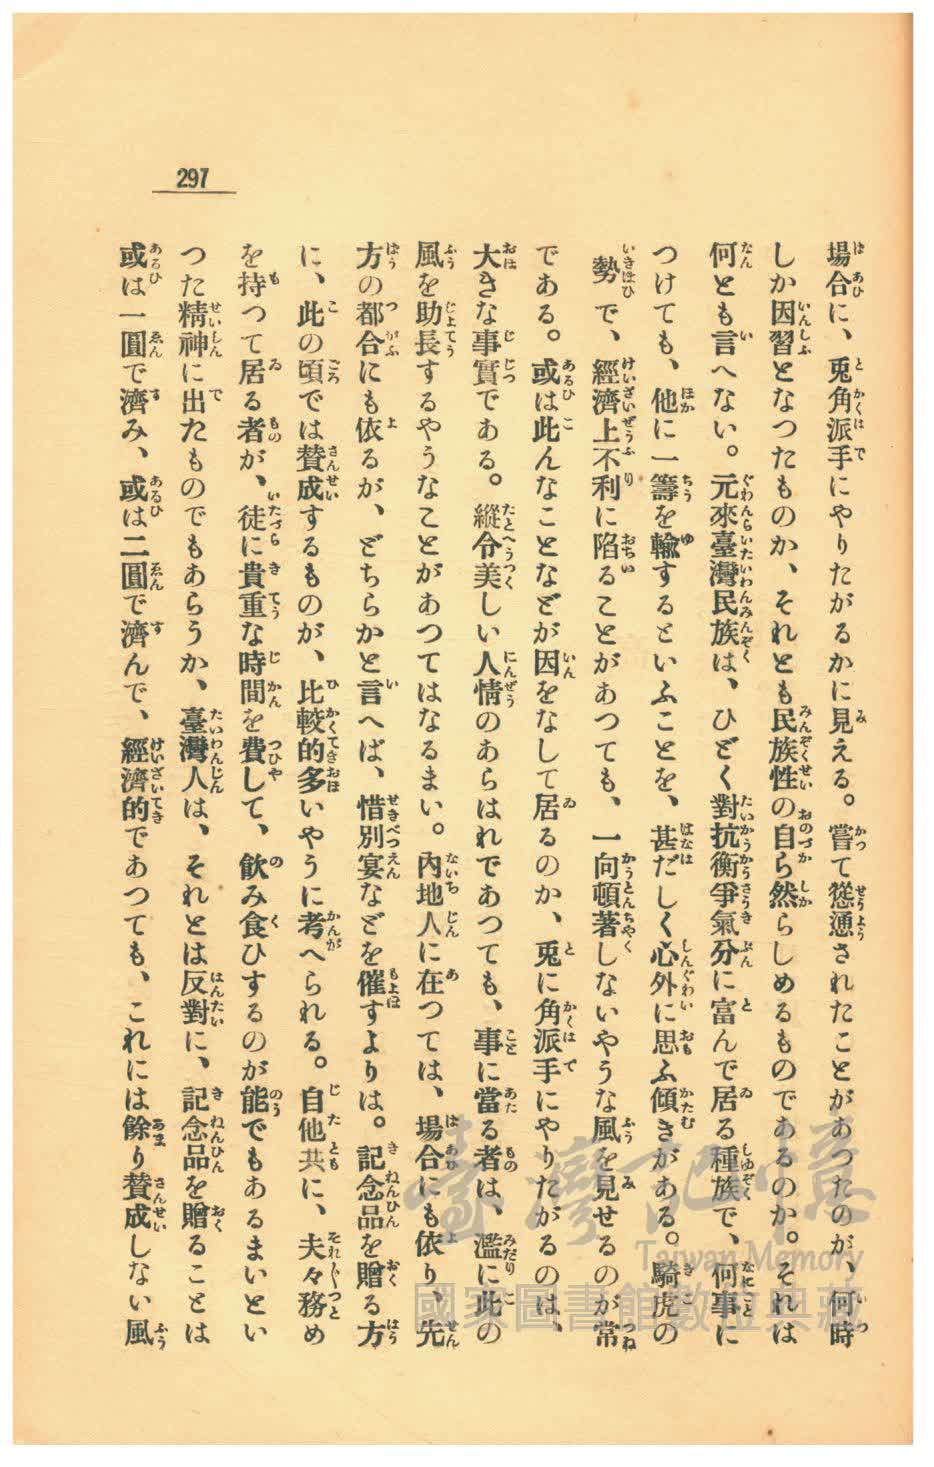 297
場合に、兎角派手にやりたがるかに見える。嘗て慫慂されたことがあつたのが、何時
しか因習となつたものか、それとも民族性の自ら然らしめるものであるのか。それは
何とも言へない。元來臺灣民族は、ひどく對抗衡爭氣分に富んで居る種族で、何事に
つけても、他に一籌を輸するといふことを、甚だしく心外に思ふ傾きがある。騎虎の
勢で、經濟上不利に陷ることがあつても、一向頓著しないやうな風を見せるのが常
である。或は此んなことなどが因をなして居るのか、兎に角派手にやりたがるのは、
大きな事實である。縱令美しい人情のあらはれであつても、事に當る者は、濫に此の
風を助長するやうなことがあつてはなるまい。內地人に在つては、場合にも依り、先
方の都合にも依るが、どちらかと言へば、惜別宴などを催すよりは。記念品を贈る方
に、此の頃では贊成するものが、比較的多いやうに考へられる。自他共に、夫々務め
を持つて居る者が、徒に貴重な時間を費して、飮み食ひするのが能でもあるまいとい
つた精神に出たものでもあらうか、臺灣人は、それとは反對に、記念品を贈ることは
或は一圓で濟み、或は二圓で濟んで、經濟的であつても、これには餘り贊成しない風
臺灣記憶
Taiwan Memory
國家圖書館數位典藏